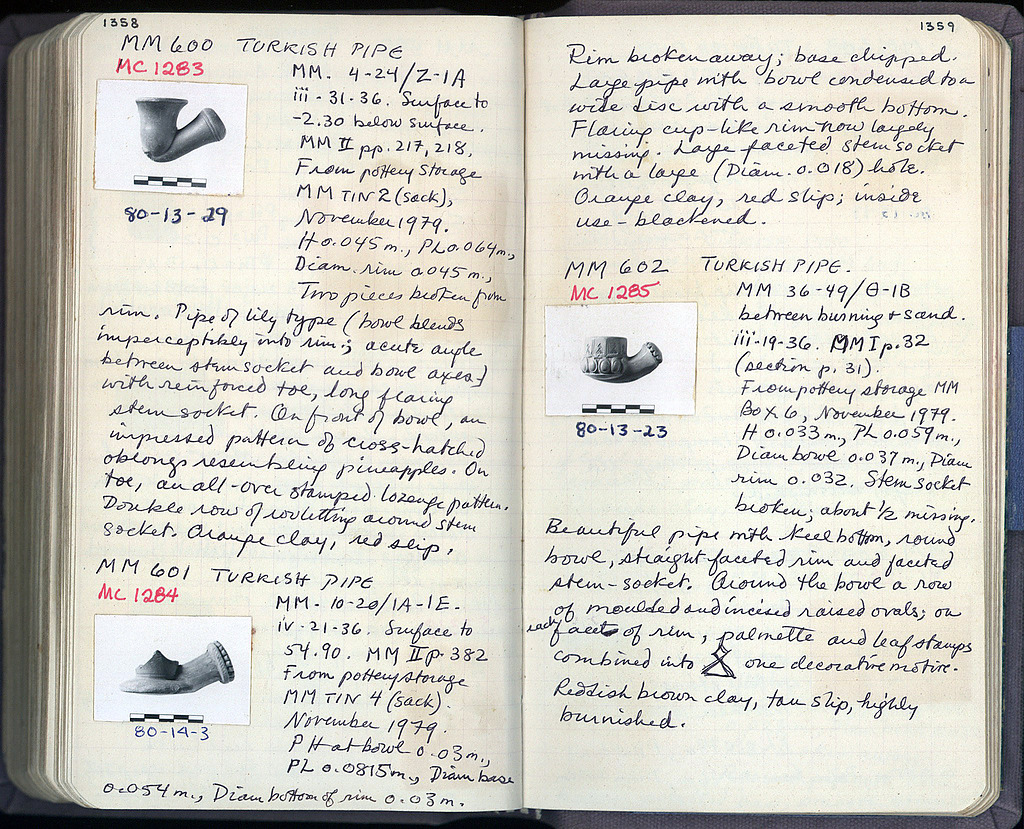 1358
MM 600 TURKISH PIPE
MC 1283
MM. 4-24/Z-1A
iii-31-36. Surface to
-2.30 below surface.
MM II pp. 217, 218.
From pottery storage
MM TIN 2 (sack),
November 1979.
H 0.045 m., PL 0.064 m.,
Diam. rim 0.045 m.,
Two pieces broken from
80-13-29
rim. Pipe of lily type (bowl blends
imperceptibly into rim; acute angle
between stem socket and bowl axes)
with reinforced toe, long flaring
stem socket. On front of bowl, an
impressed pattern of cross-hatched
oblongs resembling pineapples. On
toe, an all-over stamped lozenge pattern.
Double row of rouletting around stem
socket. Orange clay, red slip.
MM 601 TURKISH PIPE
MC 1284
MM. 10-20/1A-1E.
iv-21-36. Surface to
54.90. MM II p. 382
From pottery storage
MM TIN 4 (sack).
November 1979.
PH at bowl 0.03 m.,
PL 0.0815 m., Diam base
80-14-3
0.054 m., Diam bottom of rim 0.03 m.
1359
Rim broken away; base chipped.
Large pipe with bowl condensed to a
wide disc with a smooth bottom.
Flaring cup-like rim now largely
missing. Large faceted stem socket
with a large (Diam. 0.018) hole.
Orange clay, red slip; inside
use-blackened.
MM 602 TURKISH PIPE.
MC 1285
MM 36-49/Θ-1B
between burning + sand.
iii-19-36. MM I p. 32
(section p. 31).
From pottery storage MM
Box 6, November 1979.
H 0.033 m., PL 0.059 m.,
Diam bowl 0.037 m., Diam
rim 0.032. Stem socket
broken; about 1/2 missing.
80-13-23
Beautiful pipe with keel bottom, round
bowl, straight faceted rim and faceted
stem-socket. Around the bowl a row
of moulded and incised raised ovals; on
each facet of rim, palmette and leaf stamps
combined into one decorative motive.
Reddish brown clay, tan slip, highly
burnished.